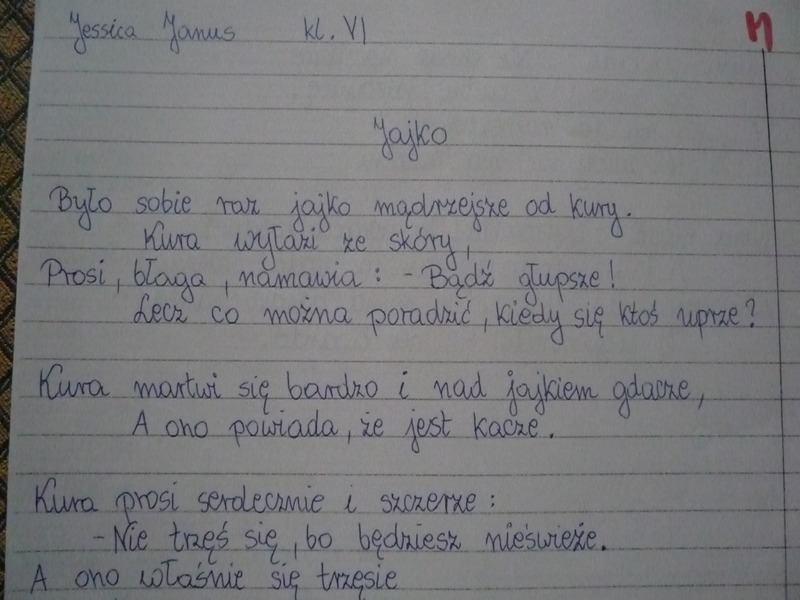 Jessica Janus kl. VI
M
Jajko
Było sobie raz jajko mądrzejsze od kury.
Kura wyłazi ze skóry,
Prosi, błaga, namawia: - Bądź głupsze!
Lecz co można poradzić, kiedy się ktoś uprze?
Kura martwi się bardzo i nad jajkiem gdacze,
A ono powiada, że jest kacze.
Kura prosi serdecznie i szczerze:
- Nie trzęś się, bo będziesz nieświeże.
A ono właśnie się trzęsie